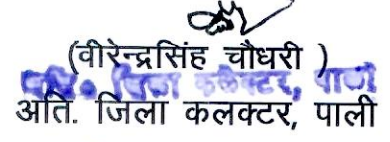 (वीरेन्द्रसिंह चौधरी )
अति. जिला कलक्टर, पाली
अति. जिला कलक्टर, पाली